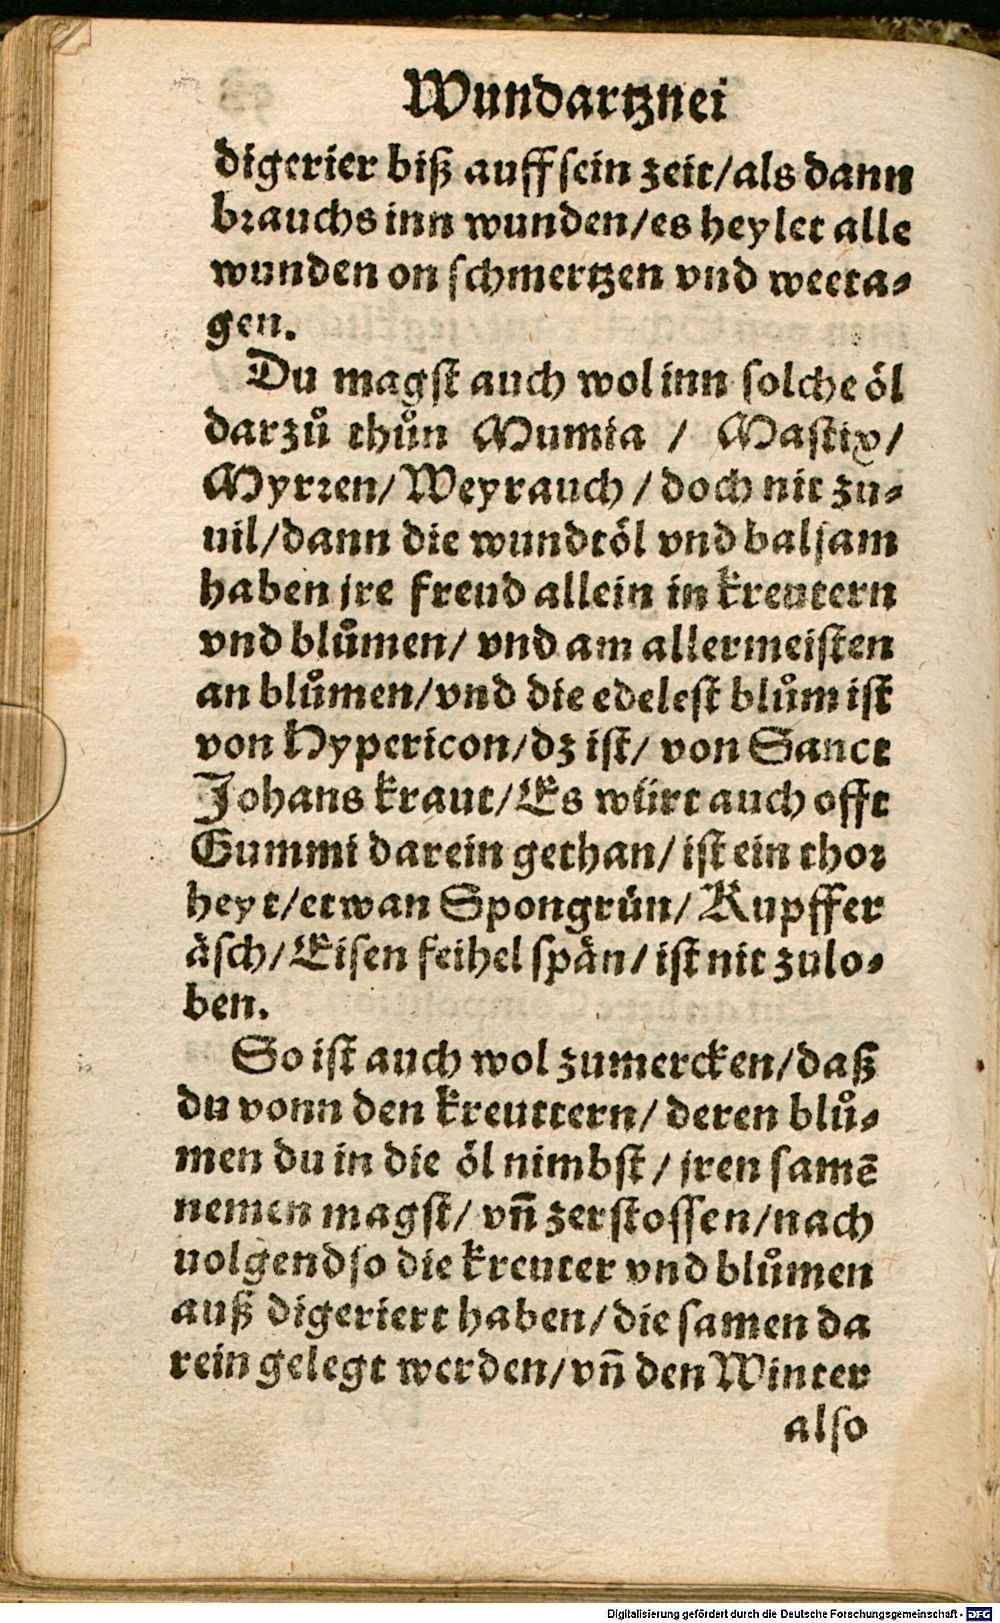 Wundartznei
digerier biß auff sein zeit/als dann
brauchs inn wunden/es heylet alle
wunden on schmertzen vnd weeta⸗
gen.
Du magst auch wol inn solche öl
darzů thůn Mumia / Mastix/
Myrꝛen/Weyrauch/doch nit zu⸗
uil/dann die wundtöl vnd balsam
haben jre freud allein in kreutern
vnd blůmen/ vnd am allermeisten
an blůmen/vnd die edelest blům ist
von Hypericon/dz ist/ von Sanct
Johans kraut/Es würt auch offt
Gummi darein gethan/ist ein thoꝛ
heyt/etwan Spongrün/Kupffer
äsch/Eisen feihel spän/ist nit zulo⸗
ben.
So ist auch wol zumercken/daß
du vonn den kreuttern/deren blů⸗
men du in die öl nimbst/jren samē
nemen magst/vñ zerstossen/nach
uolgend so die kreuter vnd blůmen
auß digeriert haben/die samen da
rein gelegt werden/vñ den Winter
also
Digitalisierung gefördert durch die Deutsche Forschungsgemeinschaft - DFG